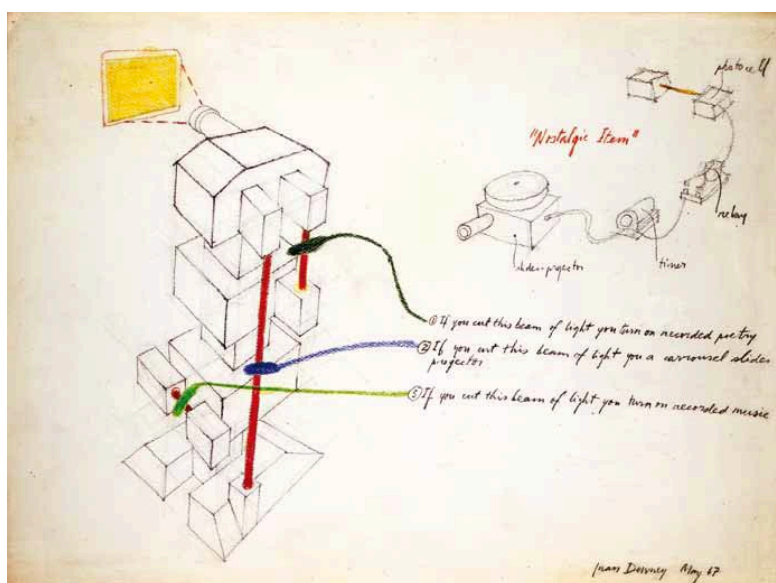 photocell
"Nostalgic Item"
relay
slide-projector
timer
① If you cut this beam of light you turn on recorded poetry
② If you cut this beam of light you a carrousel slide
projector
③ If you cut this beam of light you turn on recorded music
Juan Downey May 67